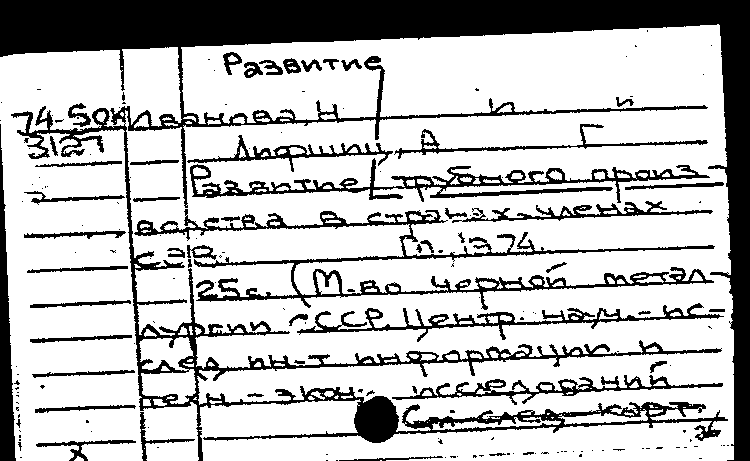 Развитие
74-50К Иванова, Н п п
3127 Лифшиц, А Г
Развитие трубного произ-
водства в странах-членах
СЭВ. М., 1974.
25с. (М-во черной метал-
лургии СССР. Центр. науч.-ис-
след. ин-т информации и
техн.-экон. исследований
См. след. карт.